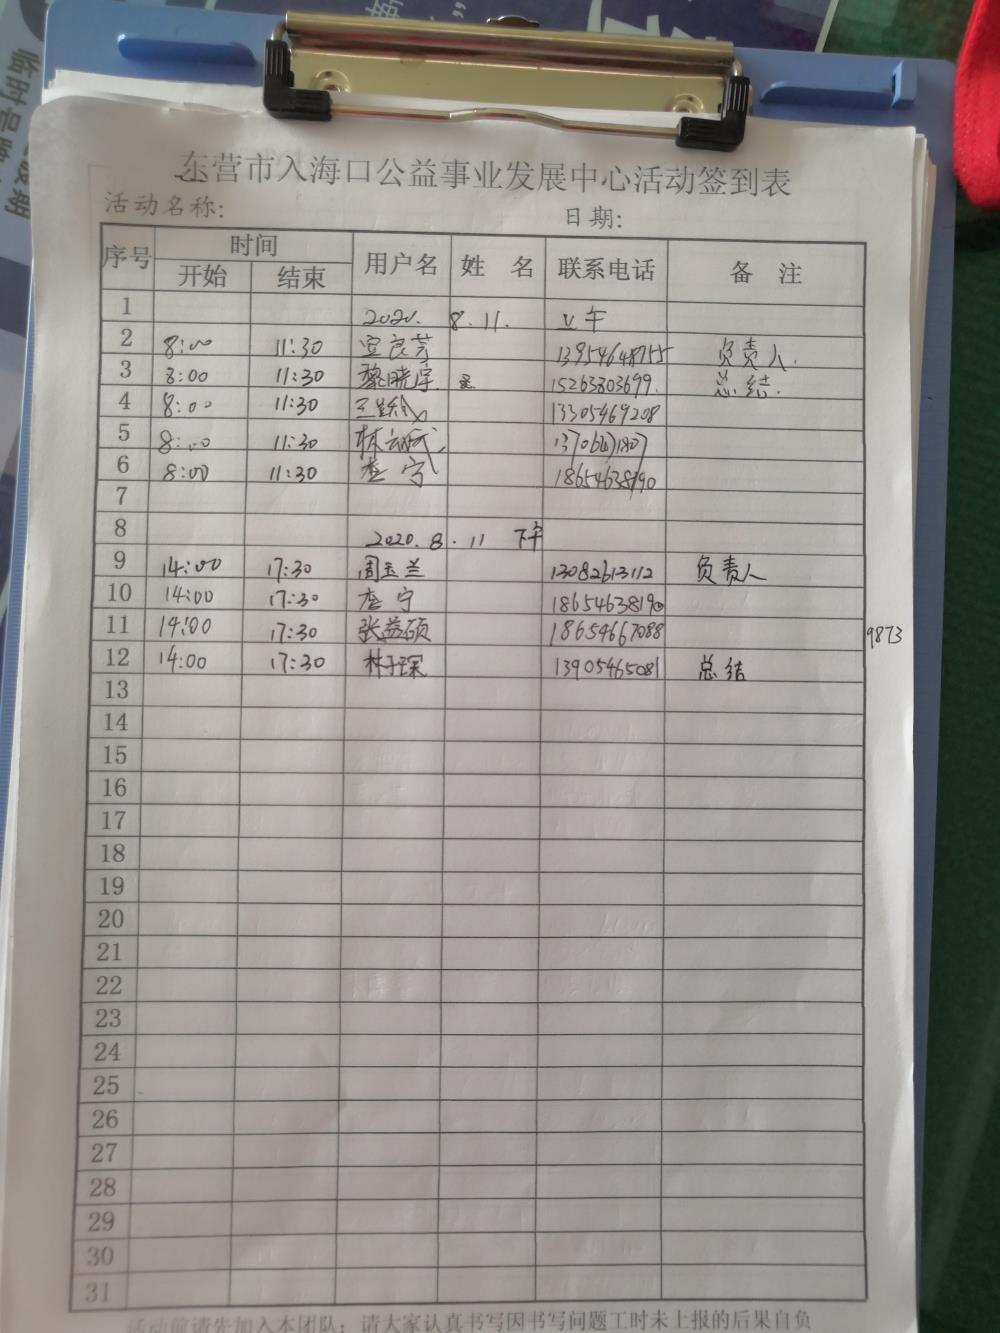 东营市入海口公益事业发展中心活动签到表
活动名称: 日期:
序号 时间 用户名 姓 名 联系电话 备 注
开始 结束
1 2020. 8.11. 上午
2 8:00 11:30 宜良芳 13954648755 负责人.
3 8:00 11:30 黎晓宇 15263803699. 总结.
4 8:00 11:30 13305469208
5 8:00 11:30 林
6 8:00 11:30 查宁 18654638190
7
8 2020.8.11 下午
9 14:00 17:30 周玉兰 13082613112 负责人
10 14:00 17:30 查宁 18654638190
11 14:00 17:30 张益硕 18654667088 9873
12 14:00 17:30 林于琛 13905465081 总结
13
14
15
16
17
18
19
20
21
22
23
24
25
26
27
28
29
30
31
活动前请先加入本团队；请大家认真书写因书写问题工时未上报的后果自负